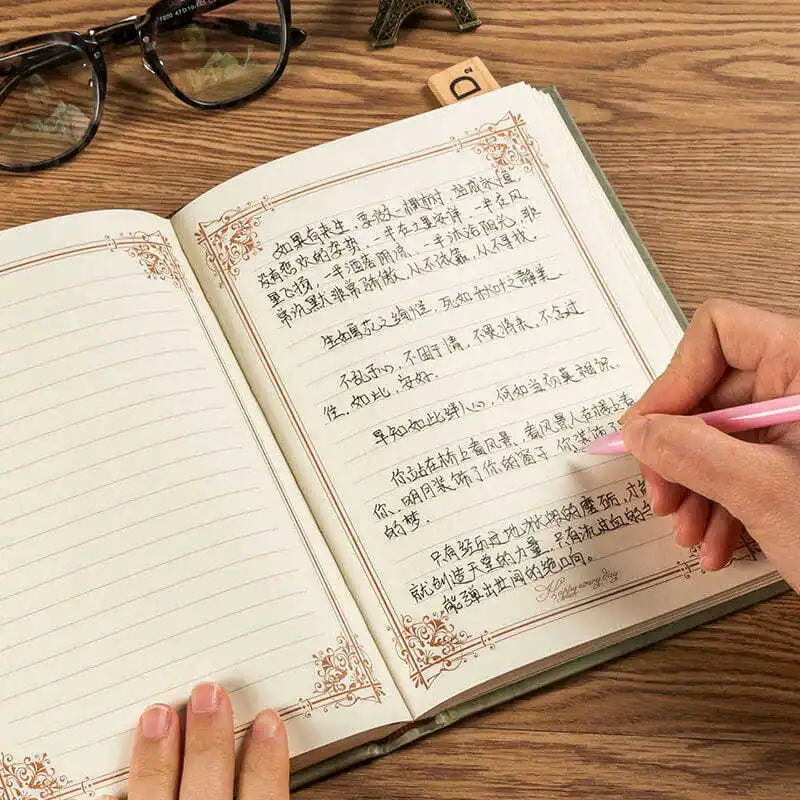 D
如果有来生，要做一棵树，站成永恒，
没有悲欢的姿势，一半在土里安详，一半在风
里飞扬，一半洒落阴凉，一半沐浴阳光，非
常沉默非常骄傲，从不依靠，从不寻找
生如夏花之绚烂，死如秋叶之静美。
不乱于心，不困于情，不畏将来，不念过
往，如此，安好。
早知如此绊人心，何如当初莫相识。
你站在桥上看风景，看风景人在楼上看
你，明月装饰了你的窗子，你装饰了
的梦。
只有经历过地狱般的磨砺，才能
就创造天堂的力量，只有流过血的
能弹出世间的绝响。
Happy every day